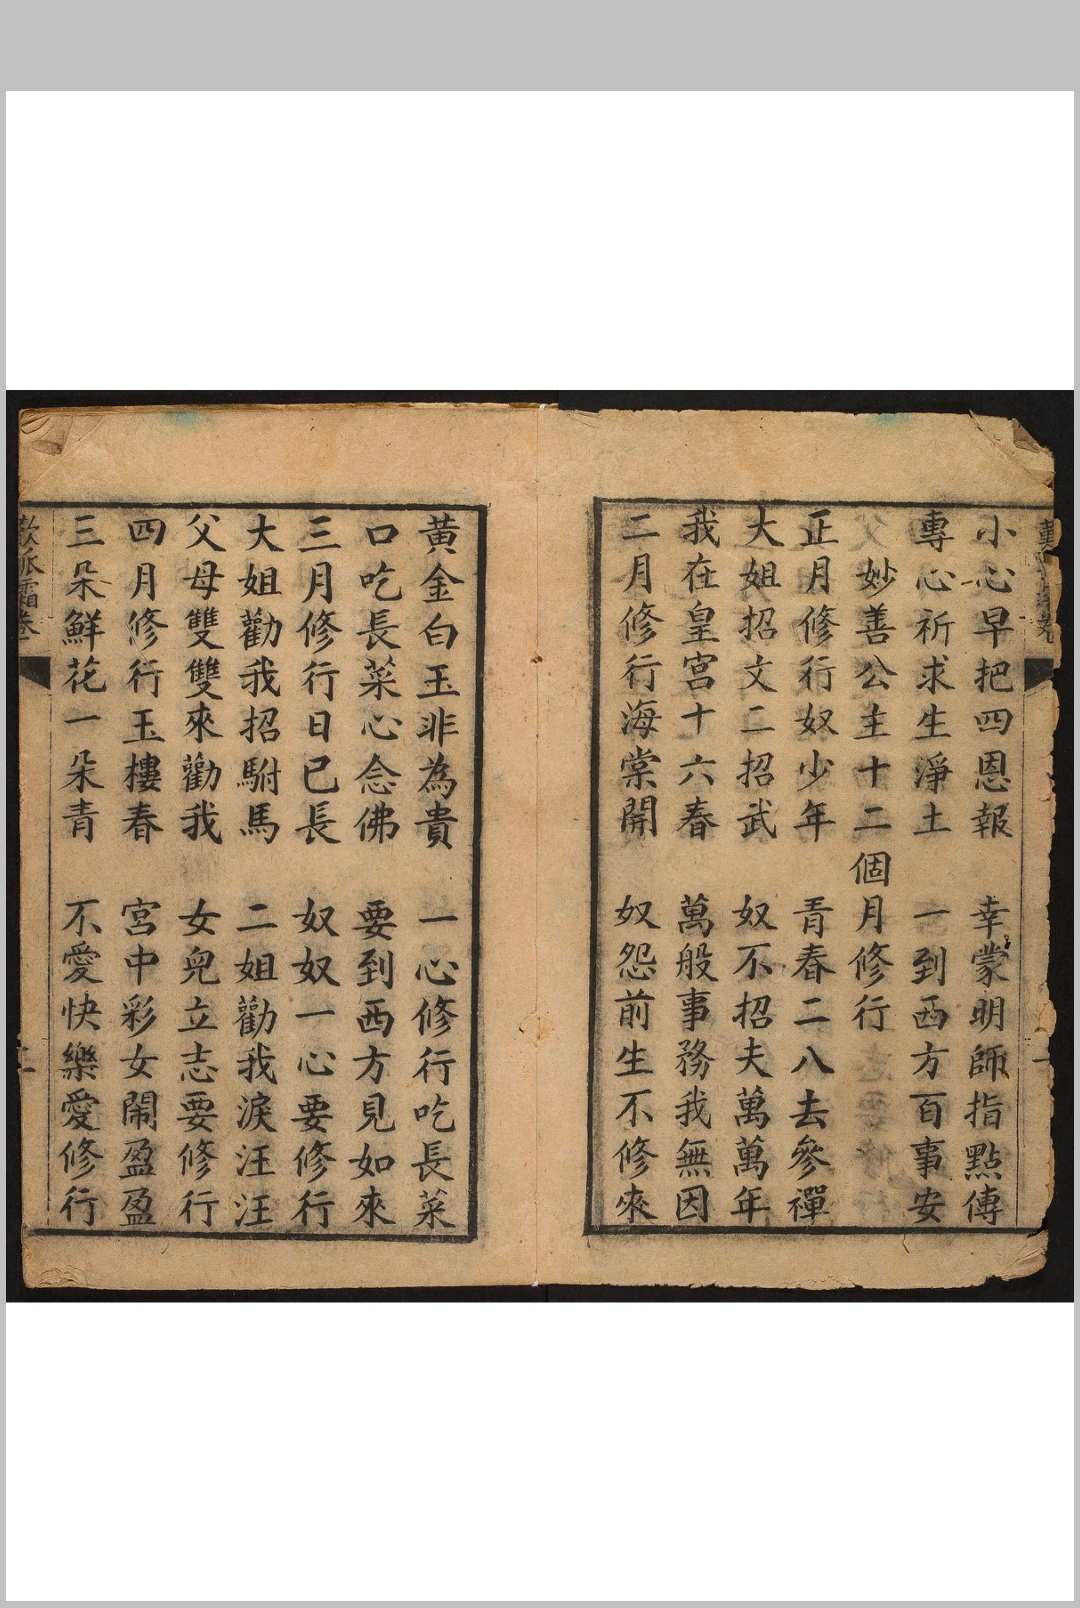 小心早把四恩報　幸蒙明師指點傳
專心祈求生淨土　一到西方百事安
妙善公主十二個月修行
正月修行奴少年　青春二八去參禪
大姐招文二招武　奴不招夫萬萬年
我在皇宮十六春　萬般事務我無因
二月修行海棠開　奴怨前生不修來
黃金白玉非為貴　一心修行吃長菜
口吃長菜心念佛　要到西方見如來
三月修行日已長　奴奴一心要修行
大姐勸我招駙馬　二姐勸我淚汪汪
父母雙雙來勸我　女兒立志要修行
四月修行玉樓春　宮中彩女鬧盈盈
三朵鮮花一朵青　不愛快樂愛修行
霜卷